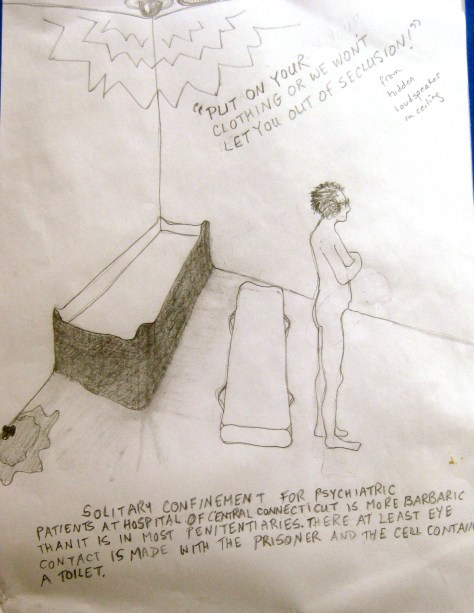 "PUT ON YOUR
CLOTHING OR WE WON'T
LET YOU OUT OF SECLUSION!"
from
hidden
loudspeaker
in ceiling
SOLITARY CONFINEMENT FOR PSYCHIATRIC
PATIENTS AT HOSPITAL OF CENTRAL CONNECTICUT IS MORE BARBARIC
THAN IT IS IN MOST PENITENTIARIES. THERE AT LEAST EYE
CONTACT IS MADE WITH THE PRISONER AND THE CELL CONTAIN
A TOILET.